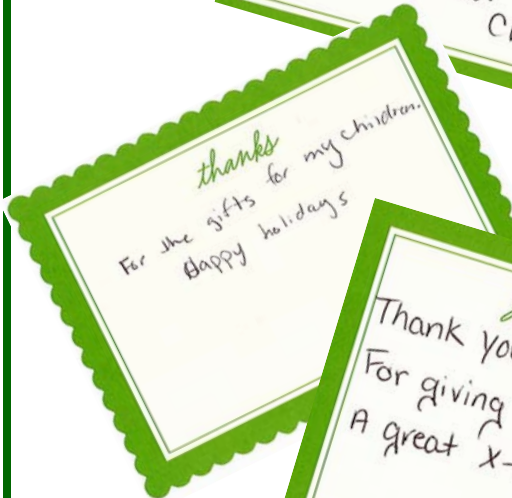 thanks
For the gifts for my children.
Happy holidays
Thank yo
For giving
A great x-